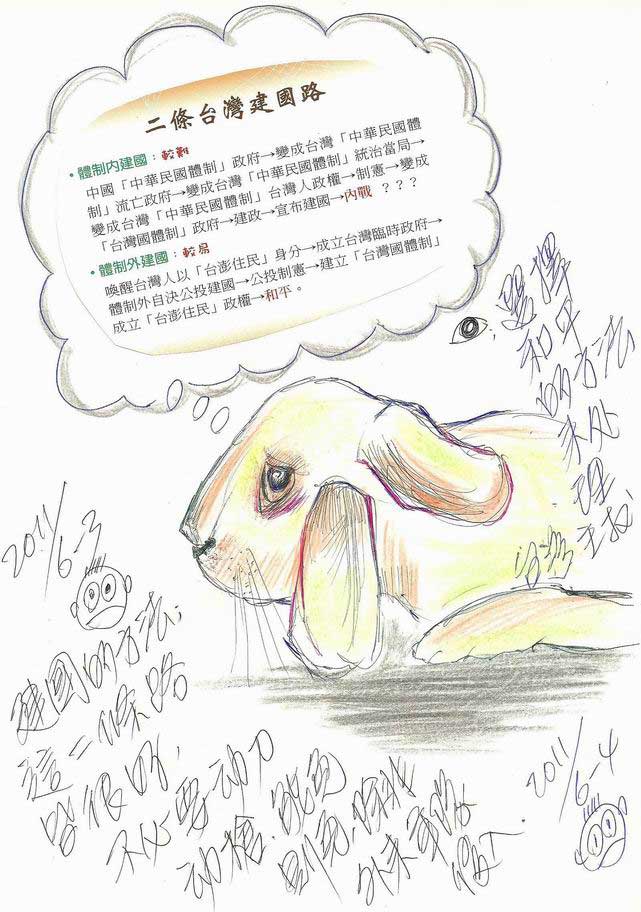 二條台灣建國路
•體制內建國：較難
中國「中華民國體制」政府→變成台灣「中華民國體
制」流亡政府→變成台灣「中華民國體制」統治當局→
變成台灣「中華民國體制」台灣人政權→制憲→變成
「台灣國體制」政府→建政→宣布建國→內戰？？？
•體制外建國：較易
喚醒台灣人以「台澎住民」身分→成立台灣臨時政府→
體制外自決公投建國→公投制憲→建立「台灣國體制」
成立「台澎住民」政權→和平。
選擇
和平
的方法
來处
理
2011/6-3
建國的方法,
這二條路
皆很好,
不必要动刀
动槍,能免
則免,
2011/6-4